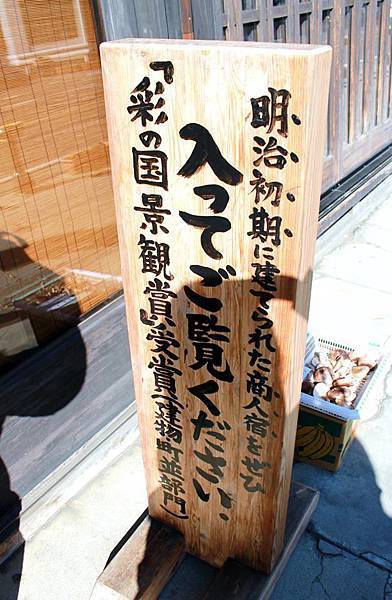 明治初期に建てられた商人宿をぜひ
入ってご覧ください。
『彩の国景観賞』受賞(建物町並部門)